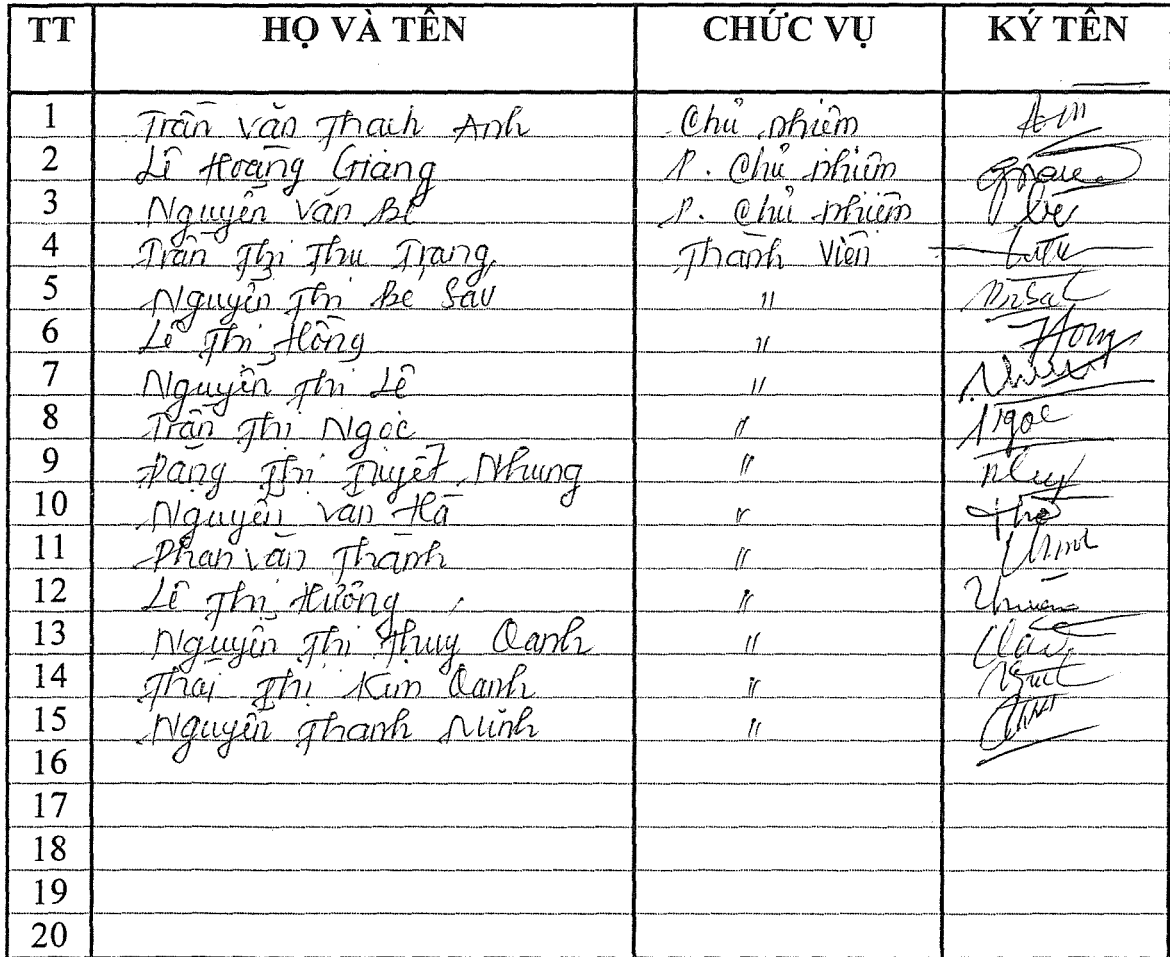 TT HỌ VÀ TÊN CHỨC VỤ KÝ TÊN
1 Trần Văn Thạch Anh Chủ nhiệm
2 Lê Hoàng Giang P. Chủ nhiệm
3 Nguyễn Văn Bé P. Chủ nhiệm Bé
4 Trần Thị Thu Trang Thành Viên
5 Nguyễn Thị Bé Sáu "
6 Lê Thị Hồng " Hồng
7 Nguyễn Thị Lê "
8 Trần Thị Ngọc " Ngọc
9 Đặng Thị Tuyết Nhung "
10 Nguyễn Văn Hà "
11 Phan Văn Thành "
12 Lê Thị Hường "
13 Nguyễn Thị Thúy Oanh "
14 Thái Thị Kim Oanh "
15 Nguyễn Thanh Minh "
16
17
18
19
20